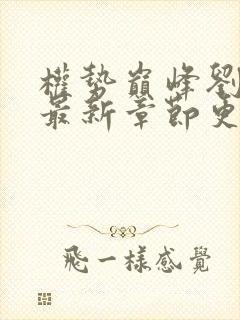 權勢巔峰劉
最新章節更
飛一樣感覺